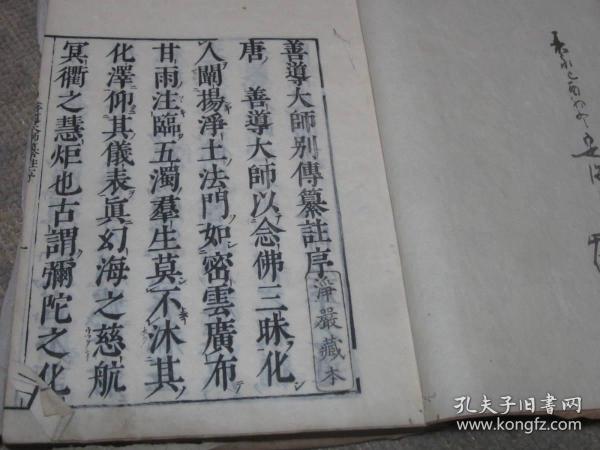 善導大師別傳纂註序
唐　善導大師以念佛三昧化
人闡揚淨土法門如密雲廣布
甘雨注臨五濁羣生莫不沐其
化澤仰其儀表眞幻海之慈航
冥衢之慧炬也古謂彌陀之化
淨嚴藏本
孔夫子旧书网
www.kongfz.com